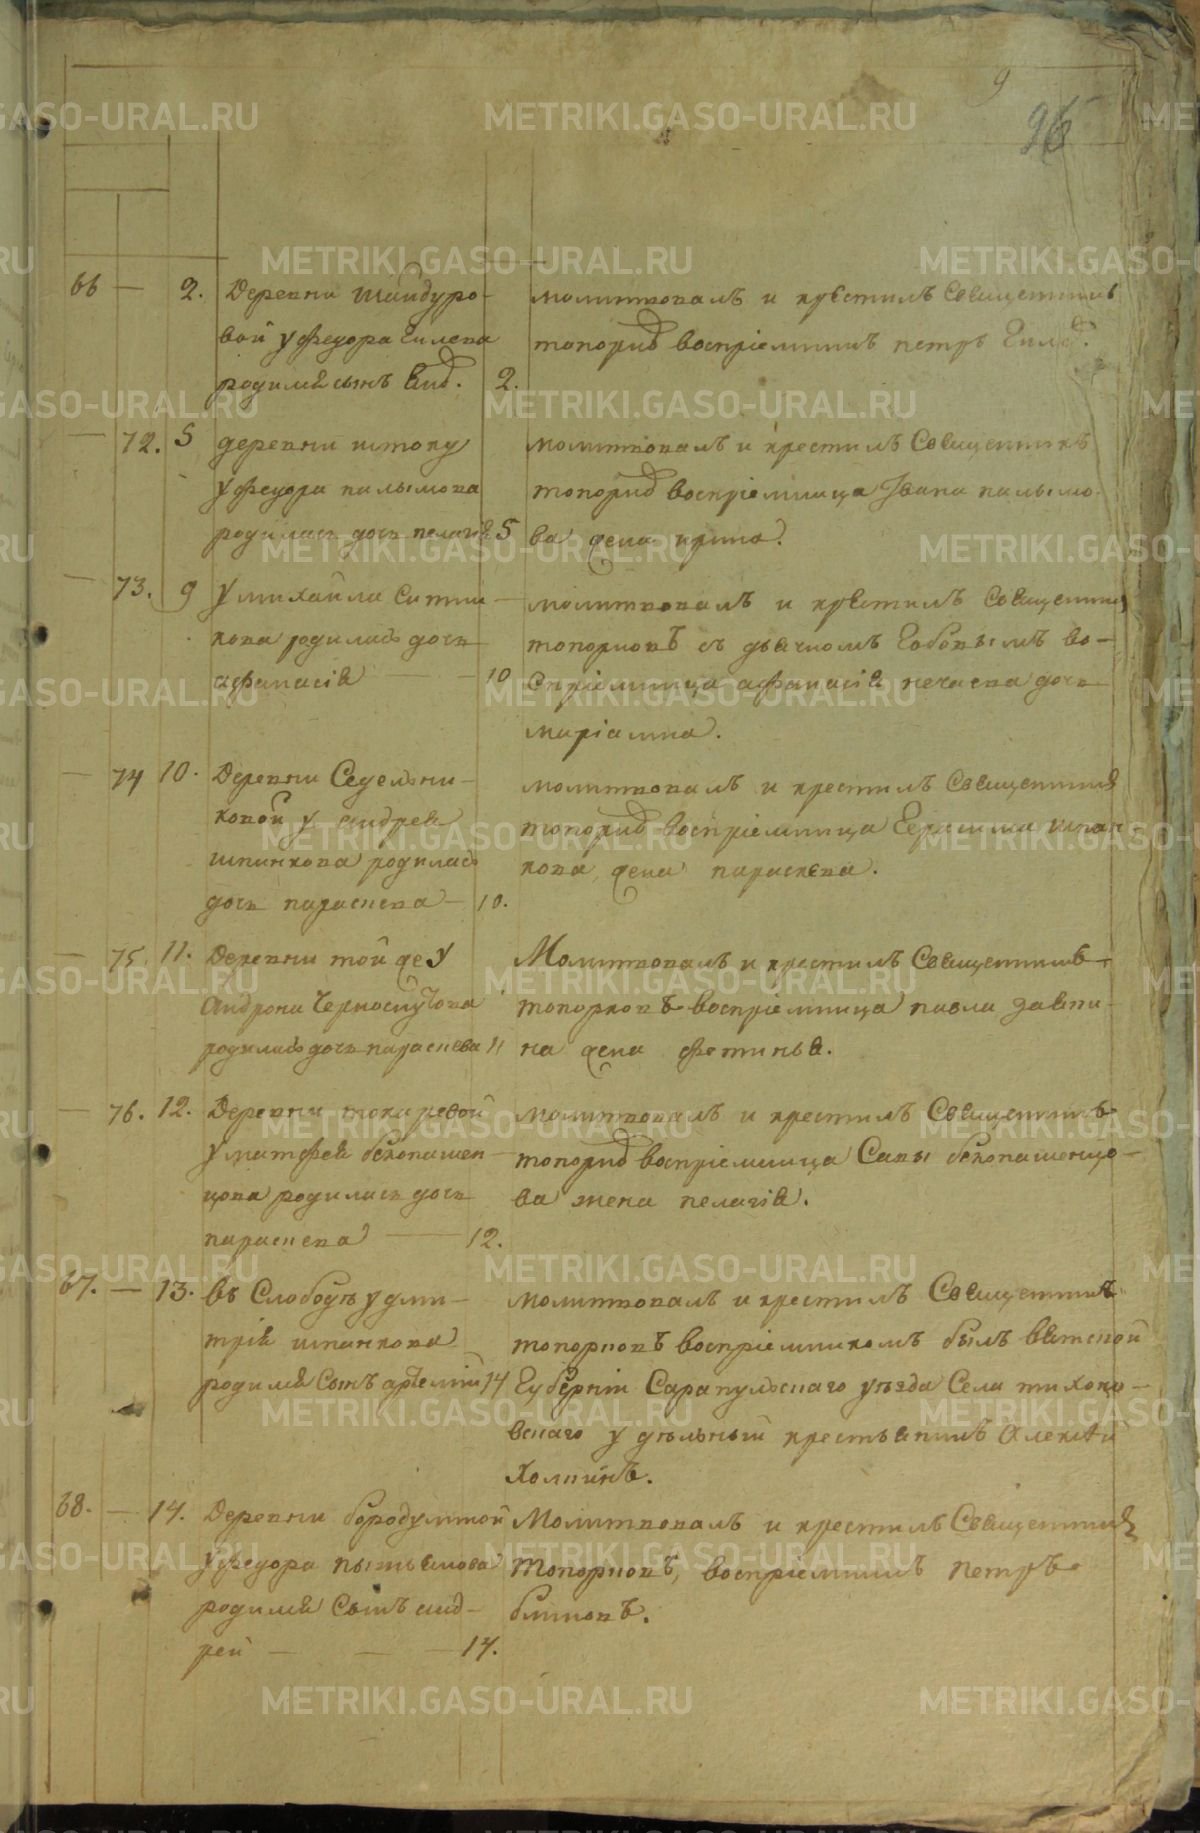 9
96
66 — 2. Деревни шайдуро-
вой у федора Гилева
родился сынъ Анд. 2.
молитвовалъ и крестилъ Священникъ
топорко воспріемникъ петръ Гиле.
— 72. 5 деревни истоку
у федора палымова
родилась дочь пелагія 5
молитвовалъ и крестилъ Священникъ
топорко воспріемница Ивана палымо-
ва жена ирина.
— 73. 9 у михаила ситни-
кова родилась дочь
афанасія — 10
молитвовалъ и крестилъ Священник
топорковъ съ дьячкомъ восприемница афанасія нечаева дочь
маріамна.
— 74 10. Деревни Седельни-
ковой у андрея
шпанкова родилась
дочь параскева — 10.
молитвовалъ и крестилъ Священник
топорко воспріемница Герасима шпан
кова жена параскева.
— 75. 11. Деревни той же у
Андрона Черноскутова
родилась дочь параскева 11
Молитвовалъ и крестилъ Священникъ
топорковъ воспріемница павла
на жена фетинья.
— 76. 12. Деревни токаревой
у матфея белопашен-
цова родилась дочь
параскева — 12.
молитвовалъ и крестилъ Священникъ
топорко воспріемница Савы белопашенцо-
ва жена пелагія.
67. — 13. въ Слободѣ у дми-
трія шпанкова
родился Сынъ артемій 14
молитвовалъ и крестилъ Священникъ
топорковъ воспріемникомъ былъ вятской
Губерніи Сарапульскаго уѣзда Села
удѣльный крестьянинъ Алексѣй
Холкинъ.
68. — 14. Деревни бородулиной
у федора
родился Сынъ анд-
рей — — 14.
Молитвовалъ и крестилъ Священник
Топорковъ, воспріемникъ петръ
блиновъ.
METRIKI.GASO-URAL.RU